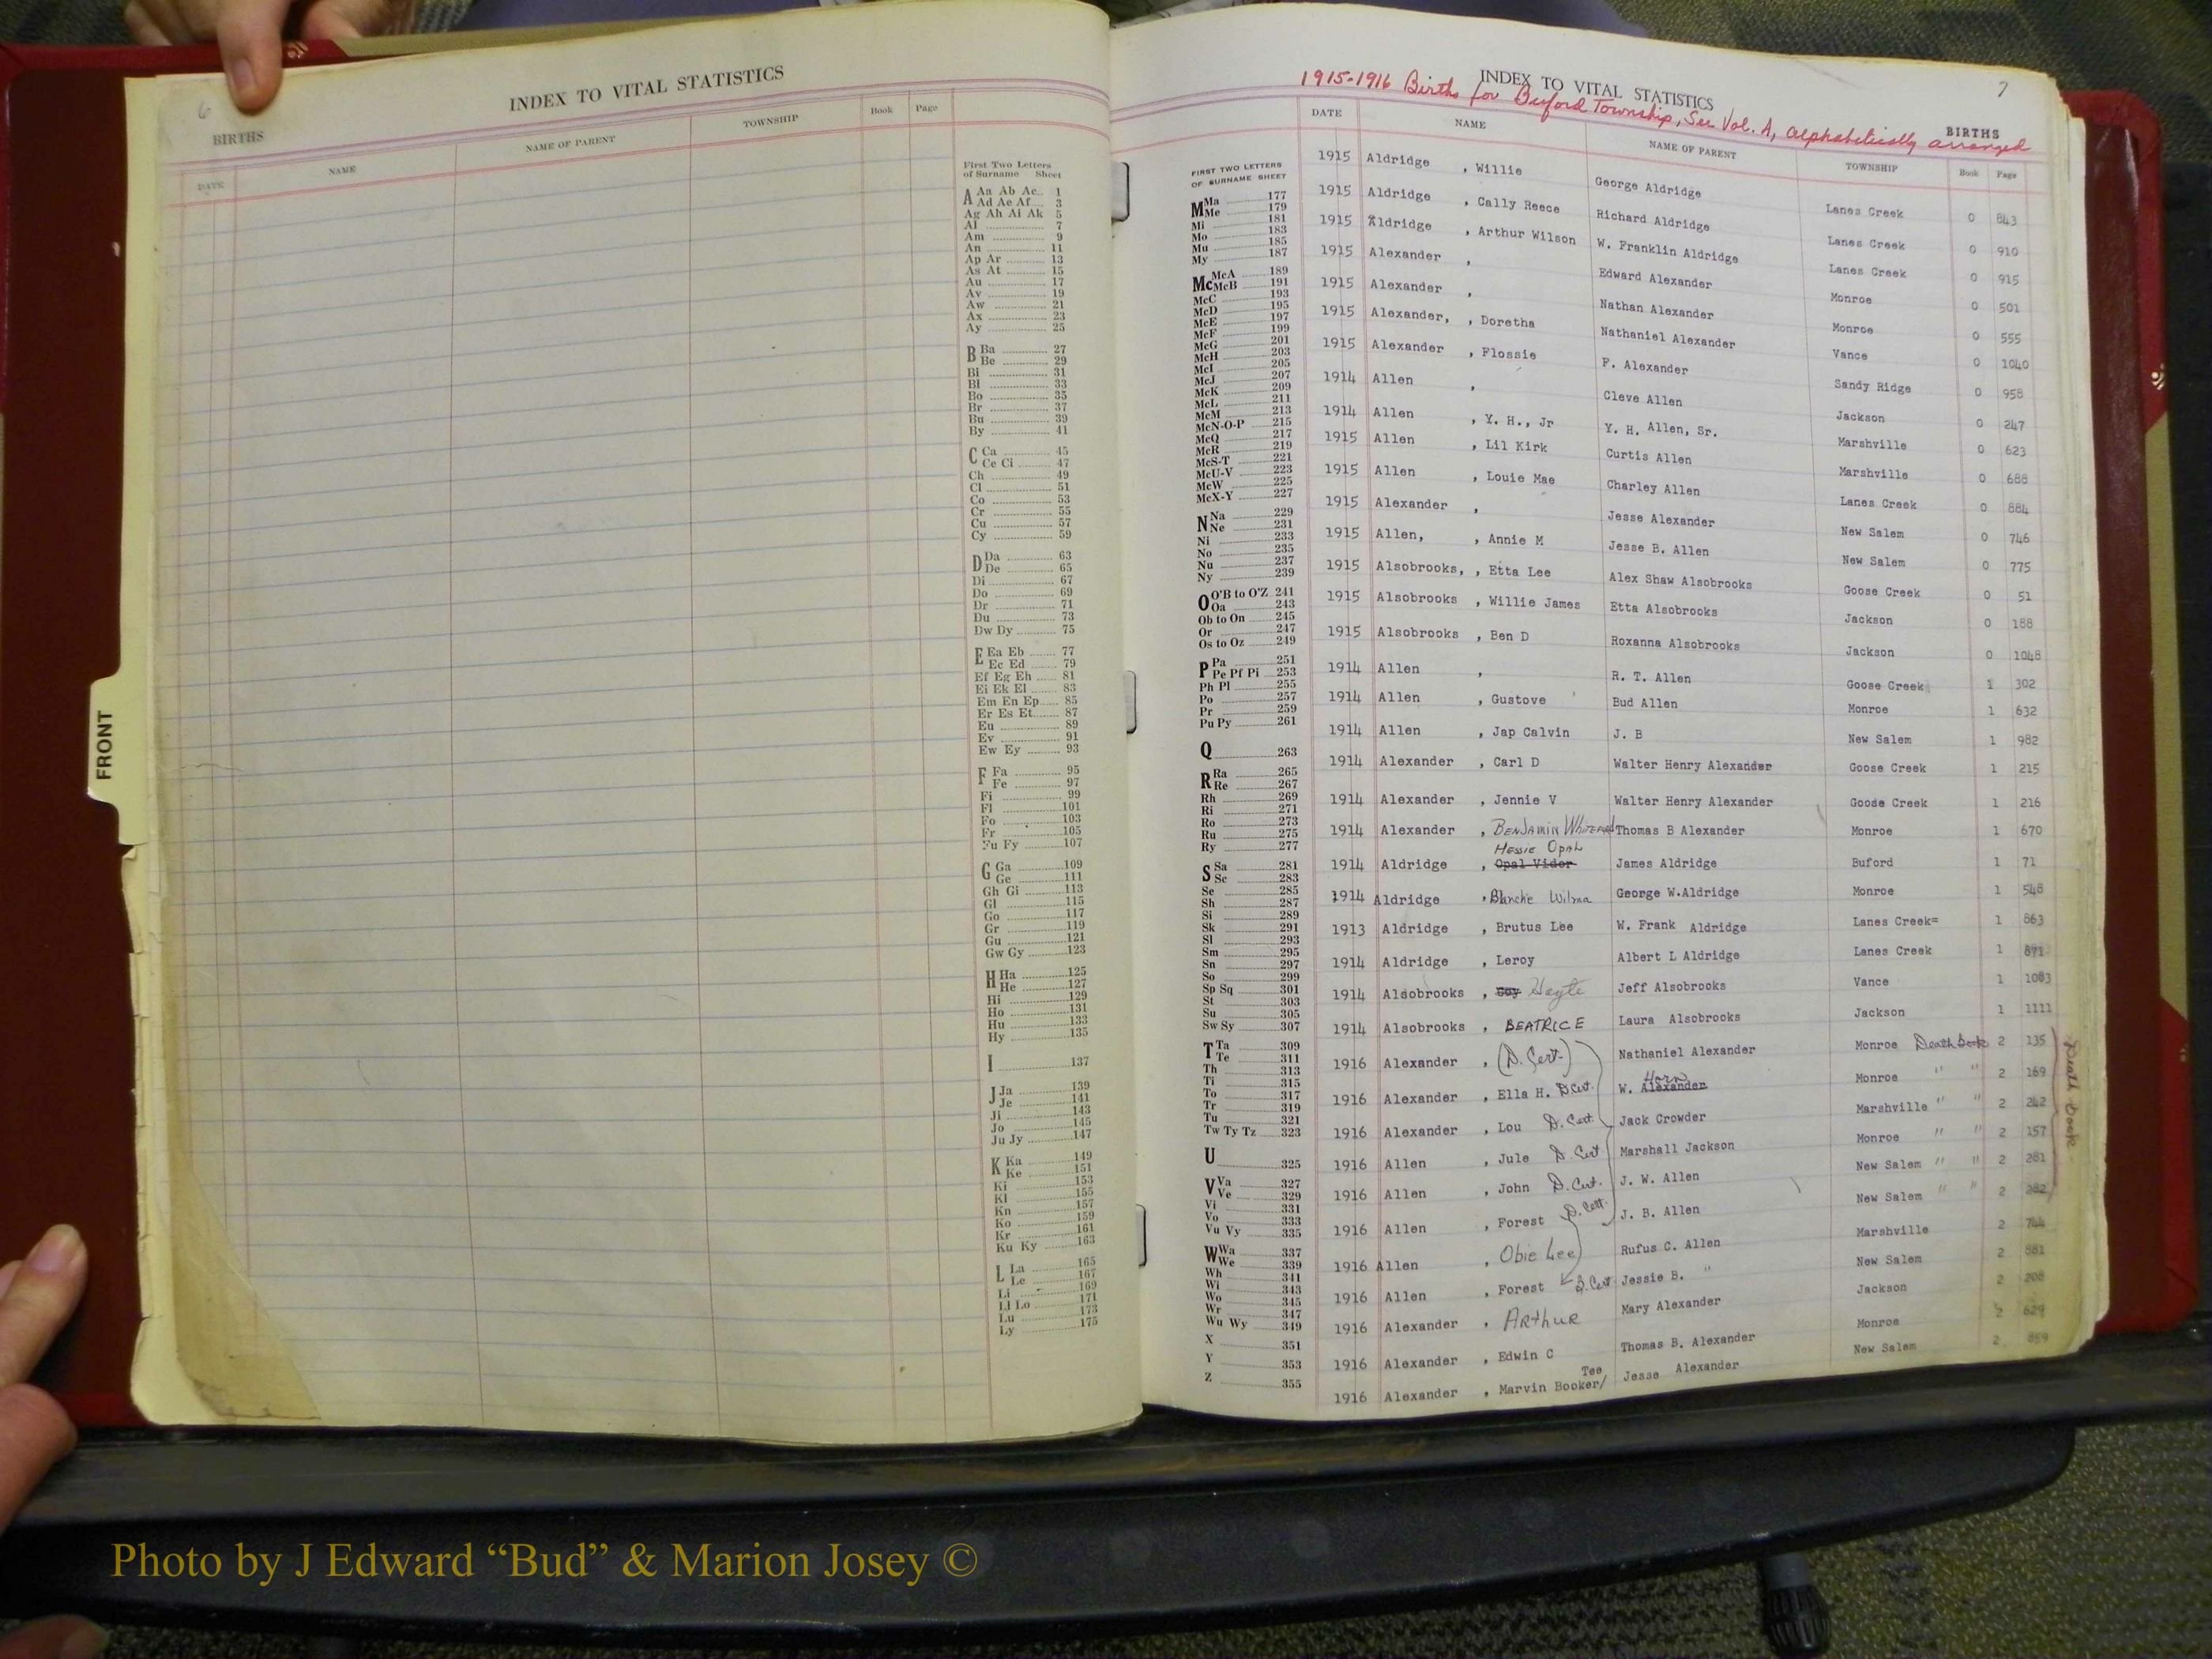 6
INDEX TO VITAL STATISTICS
BIRTHS
DATE NAME NAME OF PARENT TOWNSHIP Book Page
First Two Letters
of Surname Sheet
A Aa Ab Ac.. 1
Ad Ae Af.... 3
Ag Ah Ai Ak 5
Al 7
Am 9
An 11
Ap Ar 13
As At 15
Au 17
Av 19
Aw 21
Ax 23
Ay 25
B Ba 27
Be 29
Bi 31
Bl 33
Bo 35
Br 37
Bu 39
By 41
C Ca 45
Ce Ci 47
Ch 49
Cl 51
Co 53
Cr 55
Cu 57
Cy 59
D Da 63
De 65
Di 67
Do 69
Dr 71
Du 73
Dw Dy 75
E Ea Eb 77
Ec Ed 79
Ef Eg Eh 81
Ei Ek El 83
Em En Ep 85
Er Es Et 87
Eu 89
Ev 91
Ew Ey 93
F Fa 95
Fe 97
Fi 99
Fl 101
Fo 103
Fr 105
Fu Fy 107
G Ga 109
Ge 111
Gh Gi 113
Gl 115
Go 117
Gr 119
Gu 121
Gw Gy 123
H Ha 125
He 127
Hi 129
Ho 131
Hu 133
Hy 135
I 137
J Ja 139
Je 141
Ji 143
Jo 145
Ju Jy 147
K Ka 149
Ke 151
Ki 153
Kl 155
Kn 157
Ko 159
Kr 161
Ku Ky 163
L La 165
Le 167
Li 169
Ll Lo 171
Lu 173
Ly 175
FRONT
7
INDEX TO VITAL STATISTICS
1915-1916 Births for Buford Township, See Vol. A, alphabetically arranged
BIRTHS
DATE NAME NAME OF PARENT TOWNSHIP Book Page
FIRST TWO LETTERS
OF SURNAME SHEET
M Ma 177
Me 179
Mi 181
Mo 183
Mu 185
My 187
Mc McA 189
McB 191
McC 193
McD 195
McE 197
McF 199
McG 201
McH 203
McI 205
McJ 207
McK 209
McL 211
McM 213
McN-O-P 215
McQ 217
McR 219
McS-T 221
McU-V 223
McW 225
McX-Y 227
N Na 229
Ne 231
Ni 233
No 235
Nu 237
Ny 239
O O'B to O'Z 241
Oa 243
Ob to On 245
Or 247
Os to Oz 249
P Pa 251
Pe Pf Pi 253
Ph Pl 255
Po 257
Pr 259
Pu Py 261
Q 263
R Ra 265
Re 267
Rh 269
Ri 271
Ro 273
Ru 275
Ry 277
S Sa 281
Sc 283
Se 285
Sh 287
Si 289
Sk 291
Sl 293
Sm 295
Sn 297
So 299
Sp Sq 301
St 303
Su 305
Sw Sy 307
T Ta 309
Te 311
Th 313
Ti 315
To 317
Tr 319
Tu 321
Tw Ty Tz 323
U 325
V Va 327
Ve 329
Vi 331
Vo 333
Vu Vy 335
W Wa 337
We 339
Wh 341
Wi 343
Wo 345
Wr 347
Wu Wy 349
X 351
Y 353
Z 355
1915 Aldridge , Willie George Aldridge Lanes Creek 0 843
1915 Aldridge , Cally Reece Richard Aldridge Lanes Creek 0 910
1915 Aldridge , Arthur Wilson W. Franklin Aldridge Lanes Creek 0 915
1915 Alexander , Edward Alexander Monroe 0 501
1915 Alexander , Nathan Alexander Monroe 0 555
1915 Alexander, , Doretha Nathaniel Alexander Vance 0 1040
1915 Alexander , Flossie F. Alexander Sandy Ridge 0 958
1914 Allen , Cleve Allen Jackson 0 247
1914 Allen , Y. H., Jr Y. H. Allen, Sr. Marshville 0 623
1915 Allen , Lil Kirk Curtis Allen Marshville 0 688
1915 Allen , Louie Mae Charley Allen Lanes Creek 0 884
1915 Alexander , Jesse Alexander New Salem 0 746
1915 Allen, , Annie M Jesse B. Allen New Salem 0 775
1915 Alsobrooks, , Etta Lee Alex Shaw Alsobrooks Goose Creek 0 51
1915 Alsobrooks , Willie James Etta Alsobrooks Jackson 0 188
1915 Alsobrooks , Ben D Roxanna Alsobrooks Jackson 0 1048
1914 Allen , R. T. Allen Goose Creek 1 302
1914 Allen , Gustove Bud Allen Monroe 1 632
1914 Allen , Jap Calvin J. B New Salem 1 982
1914 Alexander , Carl D Walter Henry Alexander Goose Creek 1 215
1914 Alexander , Jennie V Walter Henry Alexander Goose Creek 1 216
1914 Alexander , BENJAMIN Thomas B Alexander Monroe 1 670
Hessie Opal
1914 Aldridge , Opal Vider James Aldridge Buford 1 71
1914 Aldridge , Blanche Wilma George W.Aldridge Monroe 1 548
1913 Aldridge , Brutus Lee W. Frank Aldridge Lanes Creek= 1 863
1914 Aldridge , Leroy Albert L Aldridge Lanes Creek 1 871
1914 Alsobrooks , Guy Hoyte Jeff Alsobrooks Vance 1 1083
1914 Alsobrooks , BEATRICE Laura Alsobrooks Jackson 1 1111
1916 Alexander , (D. Cert.) Nathaniel Alexander Monroe Death book 2 135
Horn
1916 Alexander , Ella H. D Cert. W. Alexander Monroe " " 2 169
1916 Alexander , Lou D. Cert. Jack Crowder Marshville " " 2 242
1916 Allen , Jule D. Cert Marshall Jackson Monroe " " 2 157
1916 Allen , John D. Cert. J. W. Allen New Salem " " 2 281
1916 Allen , Forest D. Cert. J. B. Allen New Salem " " 2 282
1916 Allen , Obie Lee Rufus C. Allen Marshville 2 744
1916 Allen , Forest D. Cert. Jessie B. " New Salem 2 881
1916 Alexander , ARthuR Mary Alexander Jackson 2 208
1916 Alexander , Edwin C Thomas B. Alexander Monroe 2 629
Tee
1916 Alexander , Marvin Booker/ Jesse Alexander New Salem 2 859
Death book
Photo by J Edward “Bud” & Marion Josey ©